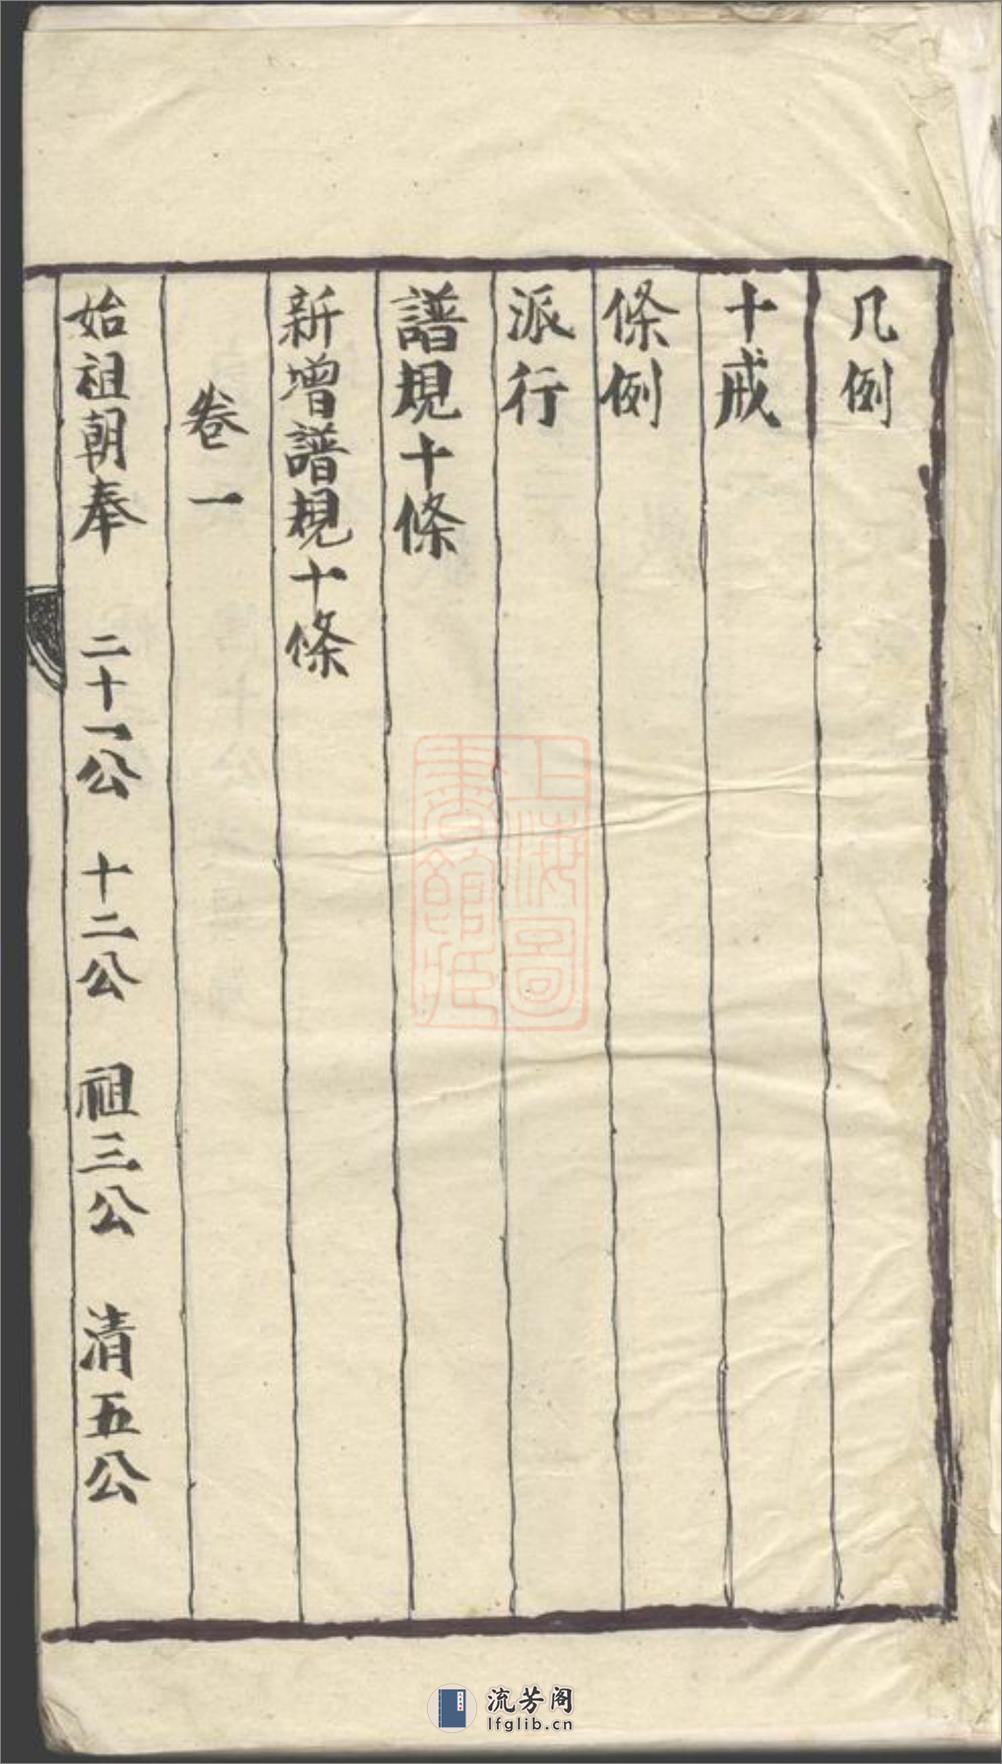 凡例
十戒
條例
派行
譜規十條
新增譜規十條
卷一
始祖朝奉 二十一公 十二公 祖三公 清五公
上海圖書館藏
流芳阁
lfglib.cn